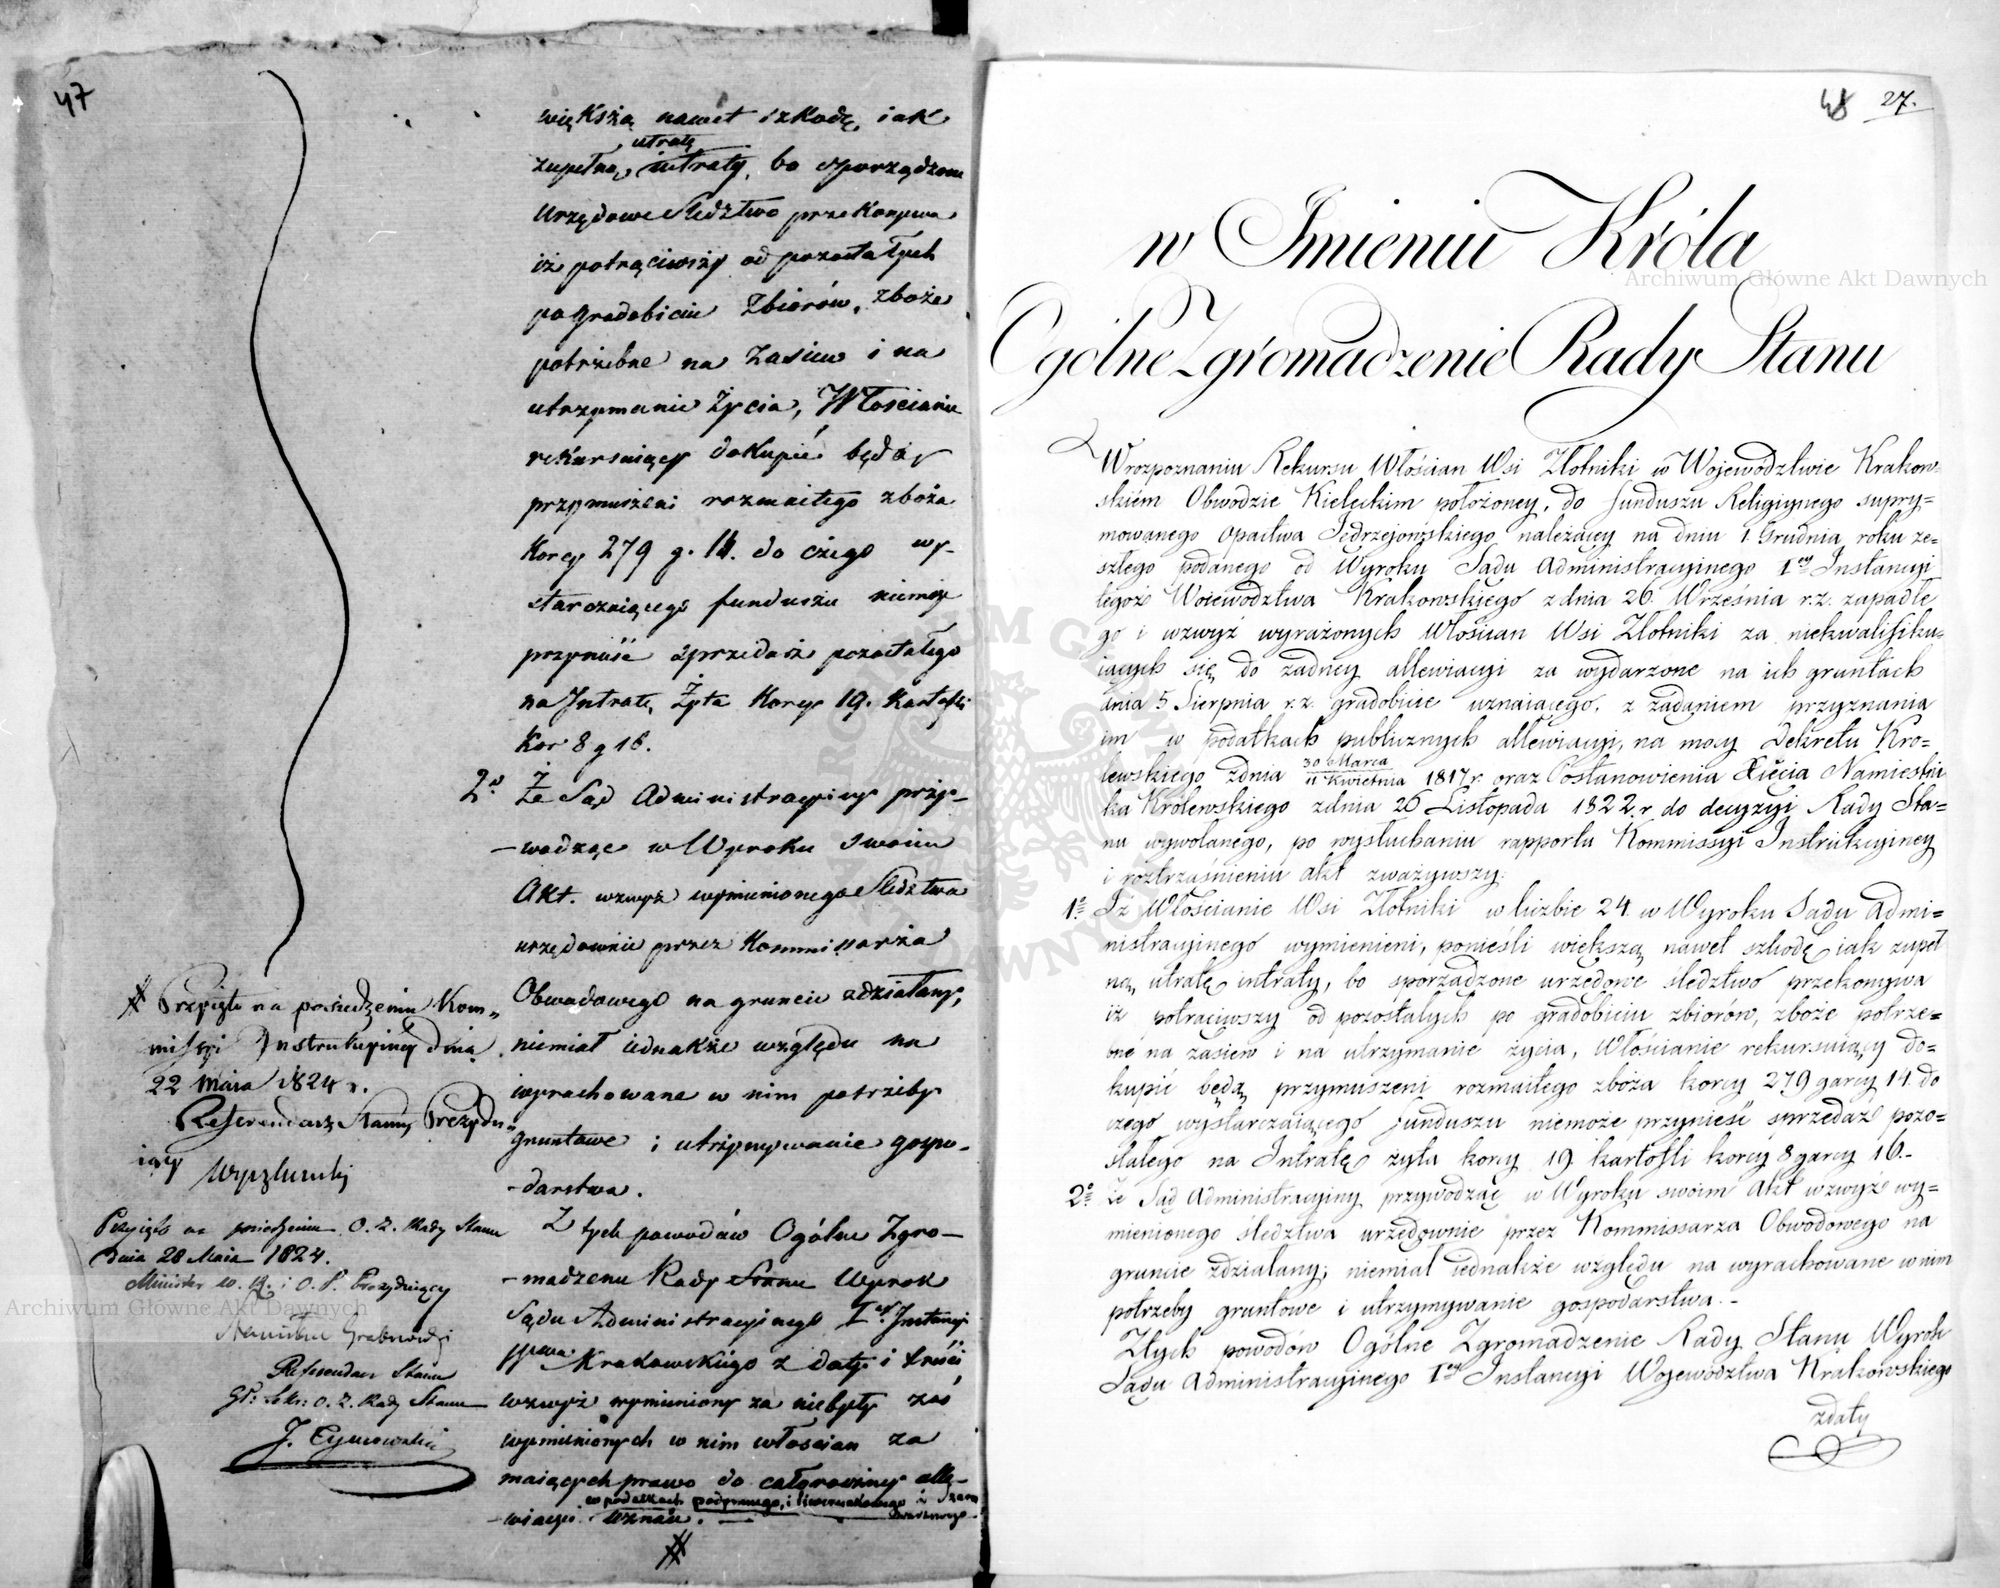 47
większą nawet szkodę, iak
utratę
zupełną, intraty, bo sporządzone
Urzędowe Śledztwo przekonywa
iż potrąciwszy od pozostałych
po gradobiciu Zbiorów, zboże
potrzebne na Zasiew i na
utrzymanie Życia, Włościanie
rekursuiący dokupić będą
przymuszeni rozmaitego zboża
Korcy 279 g. 14. do czego wy-
starczaiącego funduszu niemoże
przynieść sprzedaż pozostałego
na Intratę Żyta Korcy 19. Kartofli
Kor 8 g 16.
2o Że Sąd Administracyiny przy-
-wodząc w Wyroku swoim
Akt. wzwyż wymienionego Śledztwa
urzędownie przez Kommissarza
Obwodowego na gruncie zdziałany,
niemiał iednakże względu na
wyrachowane w nim potrzeby
gruntowe i utrzymywanie gospo-
-darstwa.
Z tych powodów Ogólne Zgro-
-madzenie Rady Stanu Wyrok
Sądu Administracyinego Iey Instancyi
Krakowskiego z daty i treści
wzwyż wymieniony za niebyły zaś
wymienionych w nim włościan za
maiących prawo do całoroczney alle-
w podatkach podymnego, i liwerunkowego i Szar
warkowego
-wiacyi uznaie.
#
# Przyięto na posiedzeniu Kom-
missyi Instrukcyiney dnia
22 Maia 1824 r.
Referendarz Stanu Prezydu-
iący
Wyczechowski
Przyięto na posiedzeniu O. Z. Rady Stanu
dnia 28 Maia 1824.
Minister W. R. i O. P. Prezyduiący
Stanisław Grabowski
Referendarz Stanu
Sekr: O. Z. Rady Stanu
48 27.
w Imieniu Króla
Ogólne Zgromadzenie Rady Stanu
W rozpoznaniu Rekursu Włościan Wsi Złotniki w Woiewództwie Krakow-
skiém Obwodzie Kieleckim położoney, do funduszu Religiynego supry-
mowanego Opactwa Jędrzejowskiego należącey na dniu 1. Grudnia roku ze-
szłego podanego od Wyroku Sądu Administracyinego 1ey Instancyi
tegoż Woiewództwa Krakowskiego z dnia 26. Września r. z. zapadłe
go i wzwyż wyrażonych Włościan Wsi Złotniki za niekwalifiku-
iących się do żadney allewiacyi za wydarzone na ich gruntach
dnia 5 Sierpnia r. z. gradobicie uznaiącego, z żądaniem przyznania
im w podatkach publicznych allewiacyi, na mocy Dekretu Kró-
lewskiego z dnia 30 Marca / 11 Kwietnia 1817 r. oraz Postanowienia Xięcia Namiestni
ka Królewskiego z dnia 26 Listopada 1822. r. do decyzyi Rady Sta-
nu wywołanego, po wysłuchaniu rapportu Kommissyi Instrukcyiney
i roztrząśnieniu akt zważywszy:
1o Iż Włościanie Wsi Złotniki w liczbie 24. w Wyroku Sądu Admi-
nistracyinego wymienieni, ponieśli większą nawet szkodę iak zupeł
ną utratę intraty, bo sporządzone urzędowe śledztwo przekonywa
iż potrąciwszy od pozostałych po gradobiciu zbiorów, zboże potrze-
bne na zasiew i na utrzymanie życia, Włościanie rekursuiący do-
kupić będą przymuszeni rozmaitego zboża korcy 279 garcy 14. do
czego wystarczaiącego funduszu niemoże przynieść sprzedaż pozo-
stałego na Intratę żyta korcy 19. kartofli korcy 8 garcy 16.-
2o Że Sąd Administracyiny przywodząc w Wyroku swoim Akt wzwyż wy-
mienionego śledztwa urzędownie przez Kommissarza Obwodowego na
gruncie zdziałany; niemiał iednakże względu na wyrachowane w nim
potrzeby gruntowe i utrzymywanie gospodarstwa.-
Z tych powodów Ogólne Zgromadzenie Rady Stanu Wyrok
Sądu Administracyinego Iey Instancyi Woiewództwa Krakowskiego
z daty
Archiwum Główne Akt Dawnych
Archiwum Główne Akt Dawnych